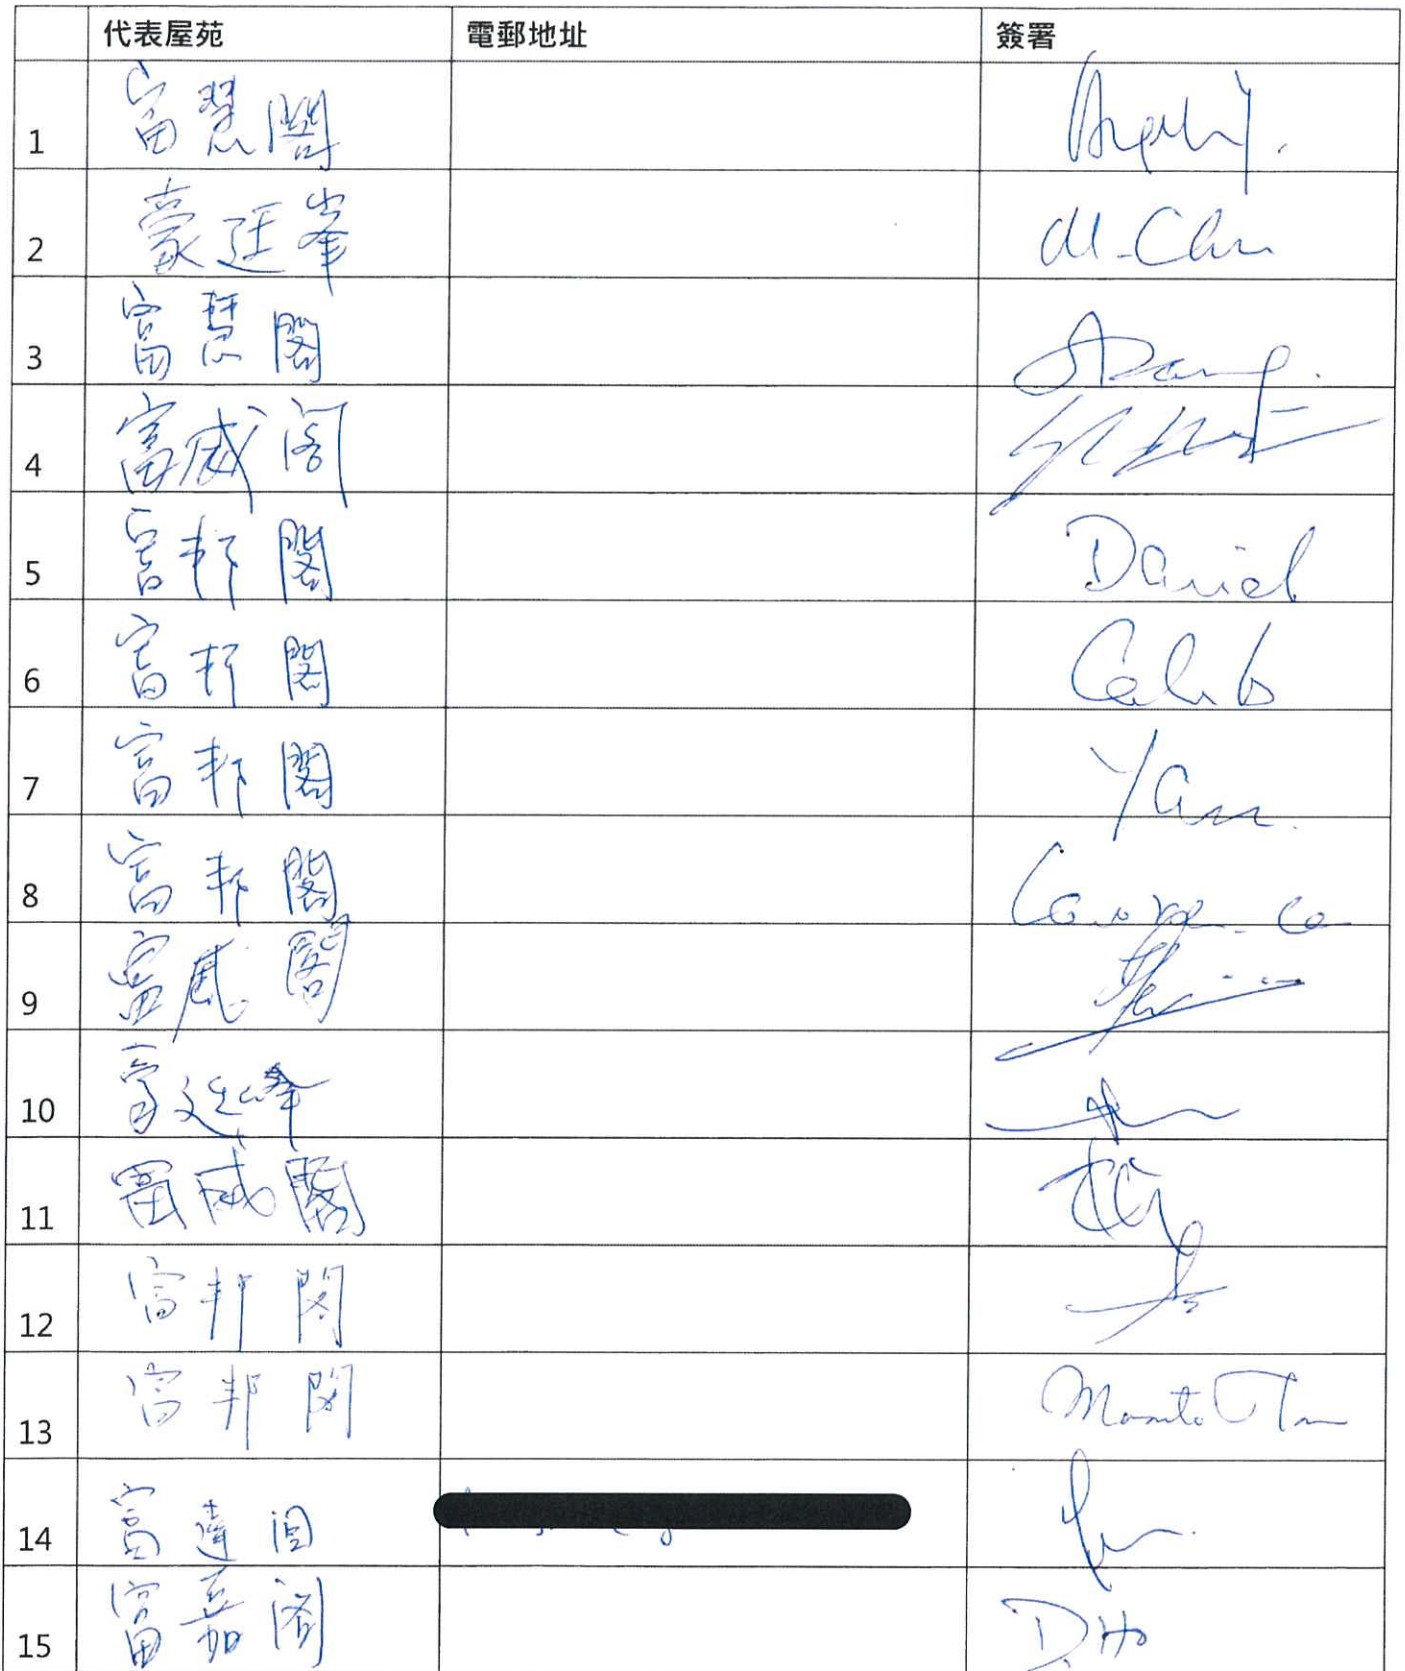 代表屋苑 電郵地址 簽署
1 富慧閣
2 豪廷峯 M. Chu
3 富慧閣
4 富威閣
5 富邦閣 Daniel
6 富邦閣 Caleb
7 富邦閣 Yan
8 富邦閣 Lawrence
9 富威閣
10 豪廷峰
11 富威閣
12 富邦閣
13 富邦閣
14 富達閣
15 富嘉閣 D. Ho